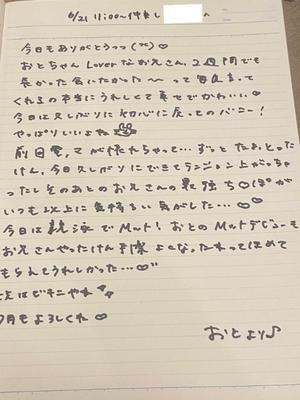 6/21 11:00〜 仲良し
今日もありがとうっっ(‾‾)♡
おとちゃん Loverなお兄さん、2週間でも
長かった会いたかった〜って毎度言って
くれるの本当にうれしくて幸せでかわいい♡
今日は久しぶりに初心に戻ってのバニー!
やっぱりいいよね
前回着てが
けん、今日久しぶりにできてテンション上がっちゃ
ったしそのあとのお兄さんの最強ち♡ぽが
いつも以上に気持ちい気がした…♡♡
今日は でMット! おとのMットデビューも
お兄さんやったけん よくなったねってほめて
もらえてうれしかった…♡♡
次はビキニやね
7月もよろしくね♡
おとより♪